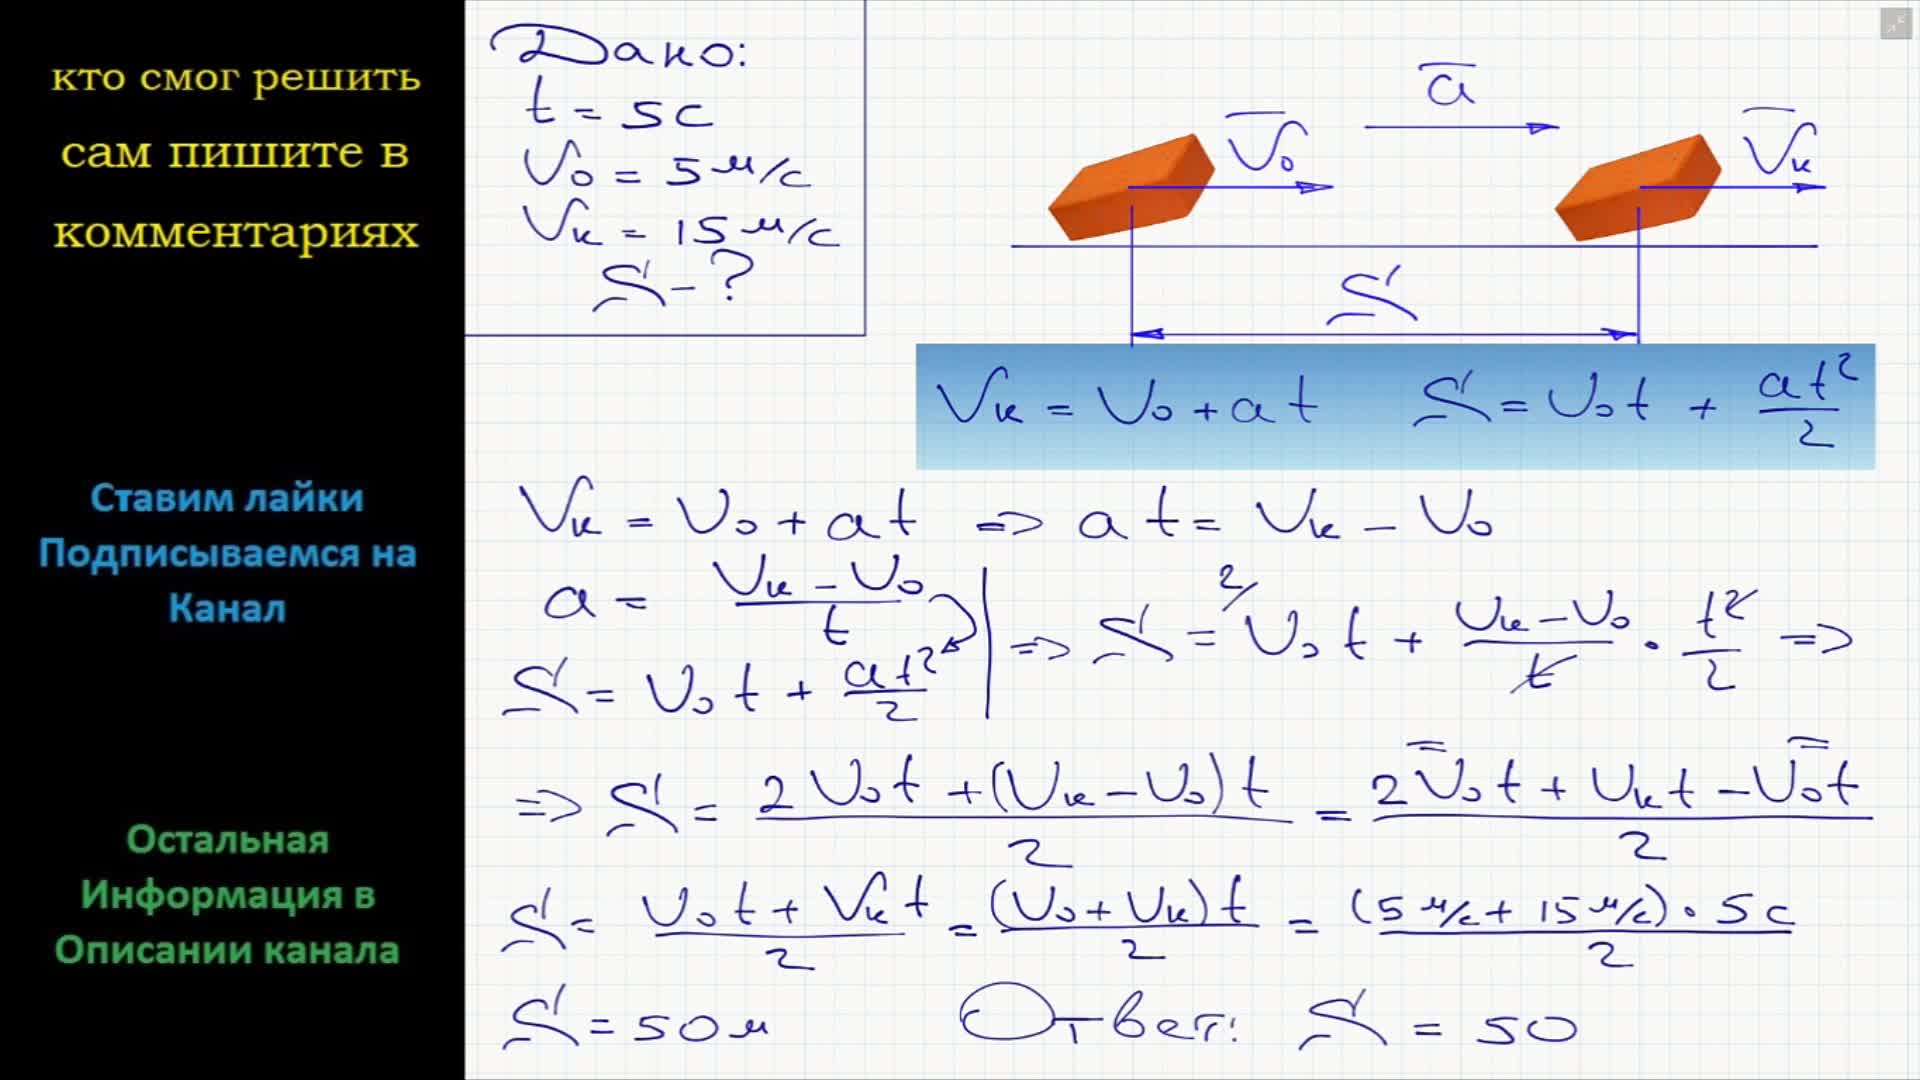 кто смог решить
сам пишите в
комментариях
Ставим лайки
Подписываемся на
Канал
Остальная
Информация в
Описании канала
Дано:
t = 5с
V₀ = 5 м/с
Vк = 15 м/с
S - ?
V₀
a
Vк
S
Vк = V₀ + at S = V₀t + at²/2
Vк = V₀ + at => at = Vк - V₀
a = (Vк - V₀)/t
S = V₀t + at²/2
=> S = ²/V₀t + (Vк - V₀)/t · t²/2 =>
=> S = (2V₀t + (Vк - V₀)t)/2 = (2V₀t + Vкt - V₀t)/2
S = (V₀t + Vкt)/2 = (V₀ + Vк)t/2 = (5 м/с + 15 м/с) · 5с/2
S = 50м Ответ: S = 50